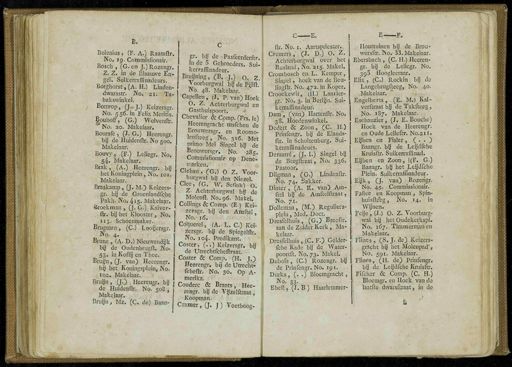 B.
Bolezius, (F. A.) Raamstr.
No. 19. Commissionair.
Bosch, (G. en J.) Rozengr.
Z. Z. in de blaauwe Engel. Suikerraffinadeurs.
Borghorst, (A. H.) Lindendwarsstr. No. 21. Tabakswinkel.
Borrop, (J. J.) Keizersgr.
No. 556. in Felix Meritis.
Bouhof, (G.) Wolvenstr.
No. 20. Makelaar.
Bousse, (J. G.) Heerengr.
bij de Huidenstr. No. 500.
Makelaar.
Bouwy, (F.) Leliegr. No.
54. Makelaar.
Brak, (A.) Heerengr. bij
het Koningsplein, No. 101.
Makelaar.
Brakamp, (J. M.) Keizersgr. bij de Groenlandsche
Pakh. No. 415. Makelaar.
Broekman, (J. G.) Keizerstr. bij het Klooster, No.
113. Schoenmaker.
Brugman, (C.) Looijersgr.
No. 4.
Brune, (A. D.) Nieuwendijk
bij de Oudenbrugst. No.
53. in Koffij en Thee.
Bruijn, (J. van) Heerengr.
bij het Koningsplein, No.
102. Makelaar.
Bruijn, (J.) Heerengr. bij
de Huidenstr. No. 508.
Makelaar.
Bruijn, Mz. (C. de) Baan-
C
gr. bij de Passeerderstr.
in de 3 Gebroeders. Suikerraffinadeurs.
Bruijning, (B. J.) O. Z.
Voorburgwal bij de Pijlst.
No. 48. Makelaar.
Capellen, (J. P. van) Hoek
O. Z. Achterburgwal en
Gasthuispoort.
Chevalier & Comp. (Frs. le)
Heerengracht tusschen de
Brouwersgr. en Roomolenstraat, No. 316. Met
primo Mei Singel bij de
Brouwersgr. No. 285.
Commissionair op Denemarken.
Clehant, (G.) O. Z. Voorburgwal bij den Nieuwl.
Cler, (G. W. Serian) O.
Z. Achterburgwal bij de
Molenst. No. 96. Makel.
Collings & Comp. (E.) Keizersgr. bij den Amstel,
No. 16.
Colquerel, (A. L. C.) Keizersgr. bij de Spiegelstr.
No. 174. Predikant.
Coster, (.) Keizersgr. bij
de Utrechtschestraat.
Coster & Comp. (H. J.)
Heerengr. bij de Utrechtschestr. No. 50. Op Amerika.
Couderc & Brants, Heerengr. bij de Vijzelstraat.
Koopman.
Cramer, (J. J.) Voetboog-
C—E.
str. No. 1. Aartspriester.
Cremers, (J. D.) O. Z.
Achterburgwal over het
Rusland, No. 215. Makel.
Crombosch en L. Kemper,
Singel, hoek van de Beulingstr. No. 472. in Koper.
Crookewit, (H.) Lauriergr. No. 3. in Berlijn. Suikerraffinadeur.
Dam, (van) Hartenstr. No.
38. Hoedenwinkel.
Dedert & Zoon, (C. H.)
Prinsengr. bij de Leidschestr. in Schulterenburg. Suikerraffinadeurs.
Deruard, (J. I.) Singel bij
de Bergstraat, No. 356.
Pastoor.
Dilgman, (G.) Lindenstr.
No. 74. Sukker.
Dinter, (A. E. van) Amstel bij de Amstelstraat,
No. 71.
Dolleman, (M.) Reguliersplein, Med. Doct.
Dreuthahn, (G.) Breestr.
aan de Zuider Kerk, Makelaar.
Dreutzuhn, (C. F.) Geldersche Kade bij de Waterpoortst. No. 73. Makel.
Dubois, (C.) Rozengr. bij
de Prinsengr. No. 191.
Durka, (..) Bloemgracht,
No. 53.
Ebest, (J. B.) Haarlemmer-
E—F.
Houttuinen bij de Brouwerstr. No. 35. Makelaar.
Eberzbach, (C. H.) Heerengr. bij de Leliegr. No.
395. Hoogleeraar.
Elze, (C.) Rockin bij de
Langebrugsteeg, No. 40.
Makelaar.
Engelberts, (E. M.) Kalverstraat bij de Taksteeg,
No. 187. Makelaar.
Eschauzier, (J. E. Bouche)
Hoek van de Heerengr.
en Oude Leliestr. No. 212.
Elsben en Pister, (..)
Baangr. bij de Leijdsche
Kruisstr. Suikerraffinad.
Elsben en Zoon, (F. G.)
Baangr. bij de Leijdsche
Plein. Suikerraffinadeur.
Eijk, (J. van) Bozengr.
No. 45. Commissionair.
Faize en Compagnie, Spinhuissteeg, No. 14. in
Wijnen.
Feije, (J.) O. Z. Voorburgwal bij het Oudekerksp.
No. 167. Timmerman en
Makelaar.
Flines, (S. J. de) Keizersgracht bij het Molenpad,
No. 591. Makelaar.
Flines, (H. de) Prinsengr.
bij de Leijdsche Kruisstr.
Fischer & Comp. (C. H.)
Bloemgr. en Hoek van de
laatste dwarsstraat, in de